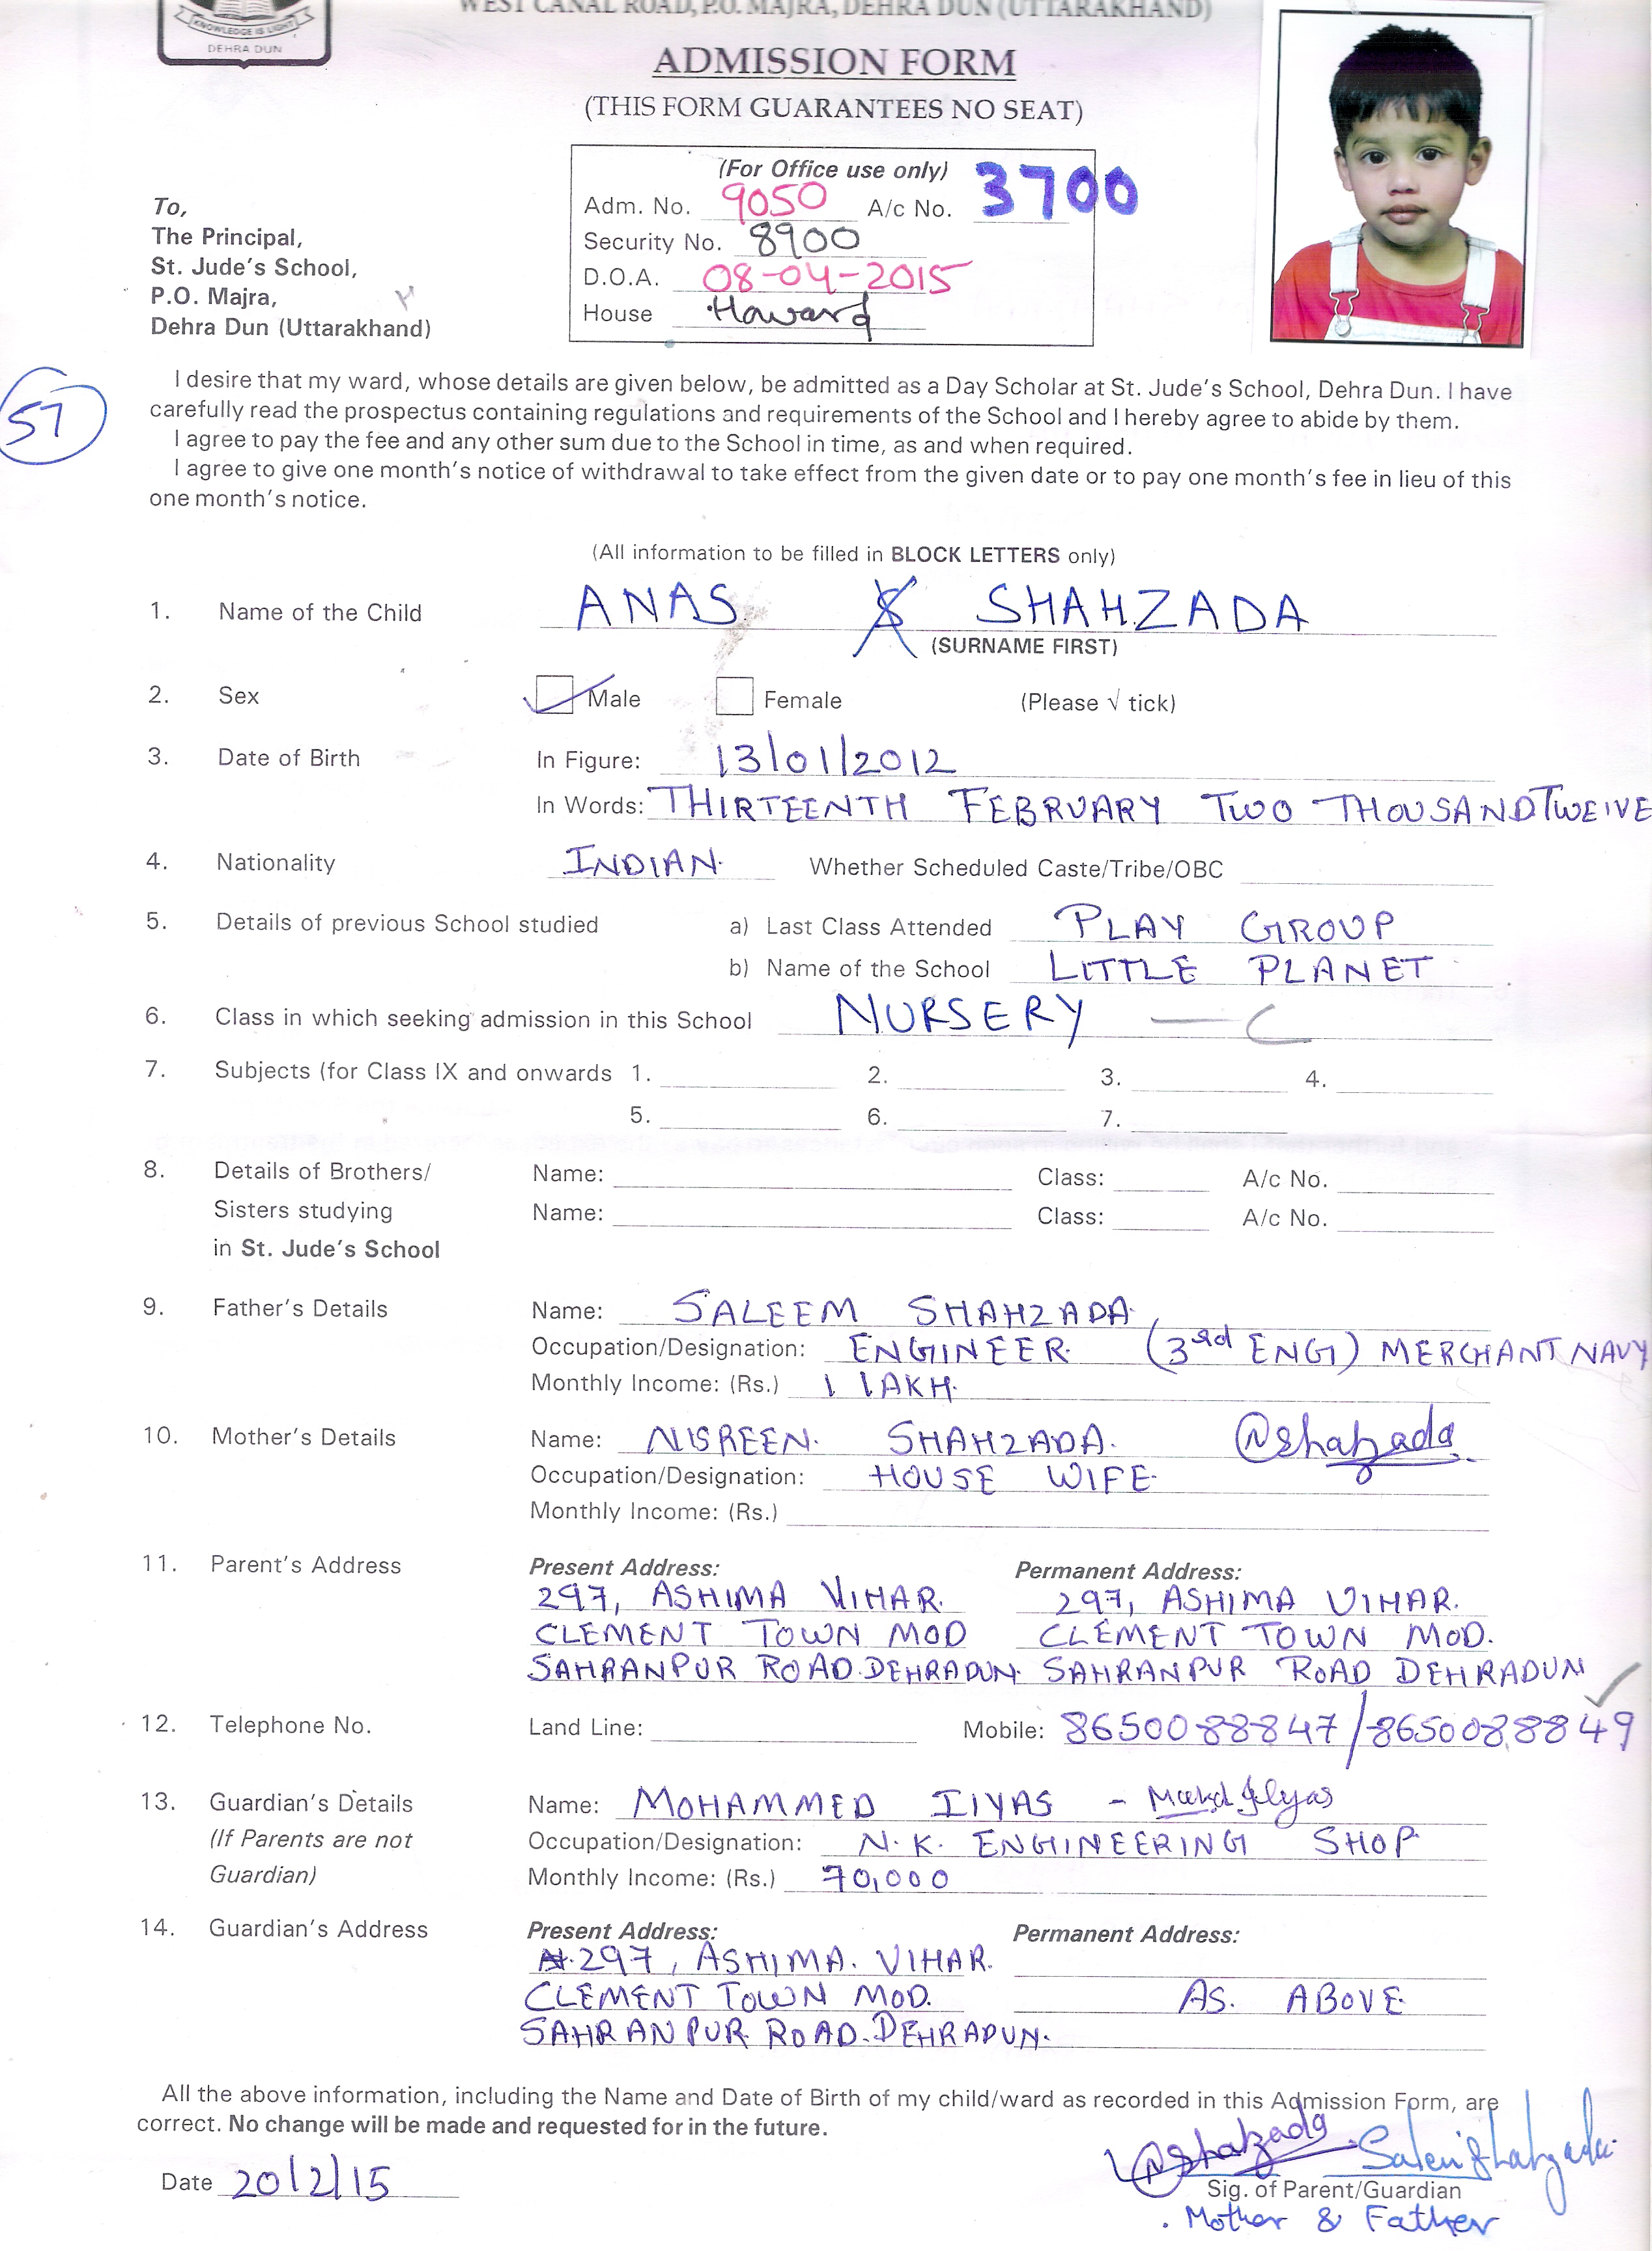 WEST CANAL ROAD, P.O. MAJRA, DEHRA DUN (UTTARAKHAND)
KNOWLEDGE IS LIGHT
DEHRA DUN
ADMISSION FORM
(THIS FORM GUARANTEES NO SEAT)
(For Office use only)
Adm. No. 9050 A/c No. 3700
Security No. 8900
D.O.A. 08-04-2015
House Howard
To,
The Principal,
St. Jude's School,
P.O. Majra,
Dehra Dun (Uttarakhand)
57
I desire that my ward, whose details are given below, be admitted as a Day Scholar at St. Jude's School, Dehra Dun. I have
carefully read the prospectus containing regulations and requirements of the School and I hereby agree to abide by them.
I agree to pay the fee and any other sum due to the School in time, as and when required.
I agree to give one month's notice of withdrawal to take effect from the given date or to pay one month's fee in lieu of this
one month's notice.
(All information to be filled in BLOCK LETTERS only)
1. Name of the Child ANAS SHAHZADA
(SURNAME FIRST)
2. Sex Male Female (Please √ tick)
3. Date of Birth In Figure: 13/01/2012
In Words: THIRTEENTH FEBRUARY TWO THOUSAND TWEIVE
4. Nationality INDIAN Whether Scheduled Caste/Tribe/OBC
5. Details of previous School studied a) Last Class Attended PLAY GROUP
b) Name of the School LITTLE PLANET
6. Class in which seeking admission in this School NURSERY — C
7. Subjects (for Class IX and onwards 1. 2. 3. 4.
5. 6. 7.
8. Details of Brothers/ Name: Class: A/c No.
Sisters studying Name: Class: A/c No.
in St. Jude's School
9. Father's Details Name: SALEEM SHAHZADA
Occupation/Designation: ENGINEER (3rd ENG) MERCHANT NAVY
Monthly Income: (Rs.) 1 LAKH.
10. Mother's Details Name: NISREEN. SHAHZADA. Nshahzada
Occupation/Designation: HOUSE WIFE
Monthly Income: (Rs.)
11. Parent's Address Present Address: Permanent Address:
297, ASHIMA VIHAR. 297, ASHIMA VIHAR.
CLEMENT TOWN MOD CLEMENT TOWN MOD.
SAHRANPUR ROAD.DEHRADUN. SAHRANPUR ROAD DEHRADUN
12. Telephone No. Land Line: Mobile: 8650088847/8650088849
13. Guardian's Details Name: MOHAMMED IIYAS - Mohd Ilyas
(If Parents are not Occupation/Designation: N.K. ENGINEERING SHOP
Guardian) Monthly Income: (Rs.) 70,000
14. Guardian's Address Present Address: Permanent Address:
297, ASHIMA. VIHAR.
CLEMENT TOWN MOD. AS. ABOVE
SAHRANPUR ROAD.DEHRADUN.
All the above information, including the Name and Date of Birth of my child/ward as recorded in this Admission Form, are
correct. No change will be made and requested for in the future.
Date 20/2/15 Nshahzada Saleem Shahzada
Sig. of Parent/Guardian
. Mother & Father